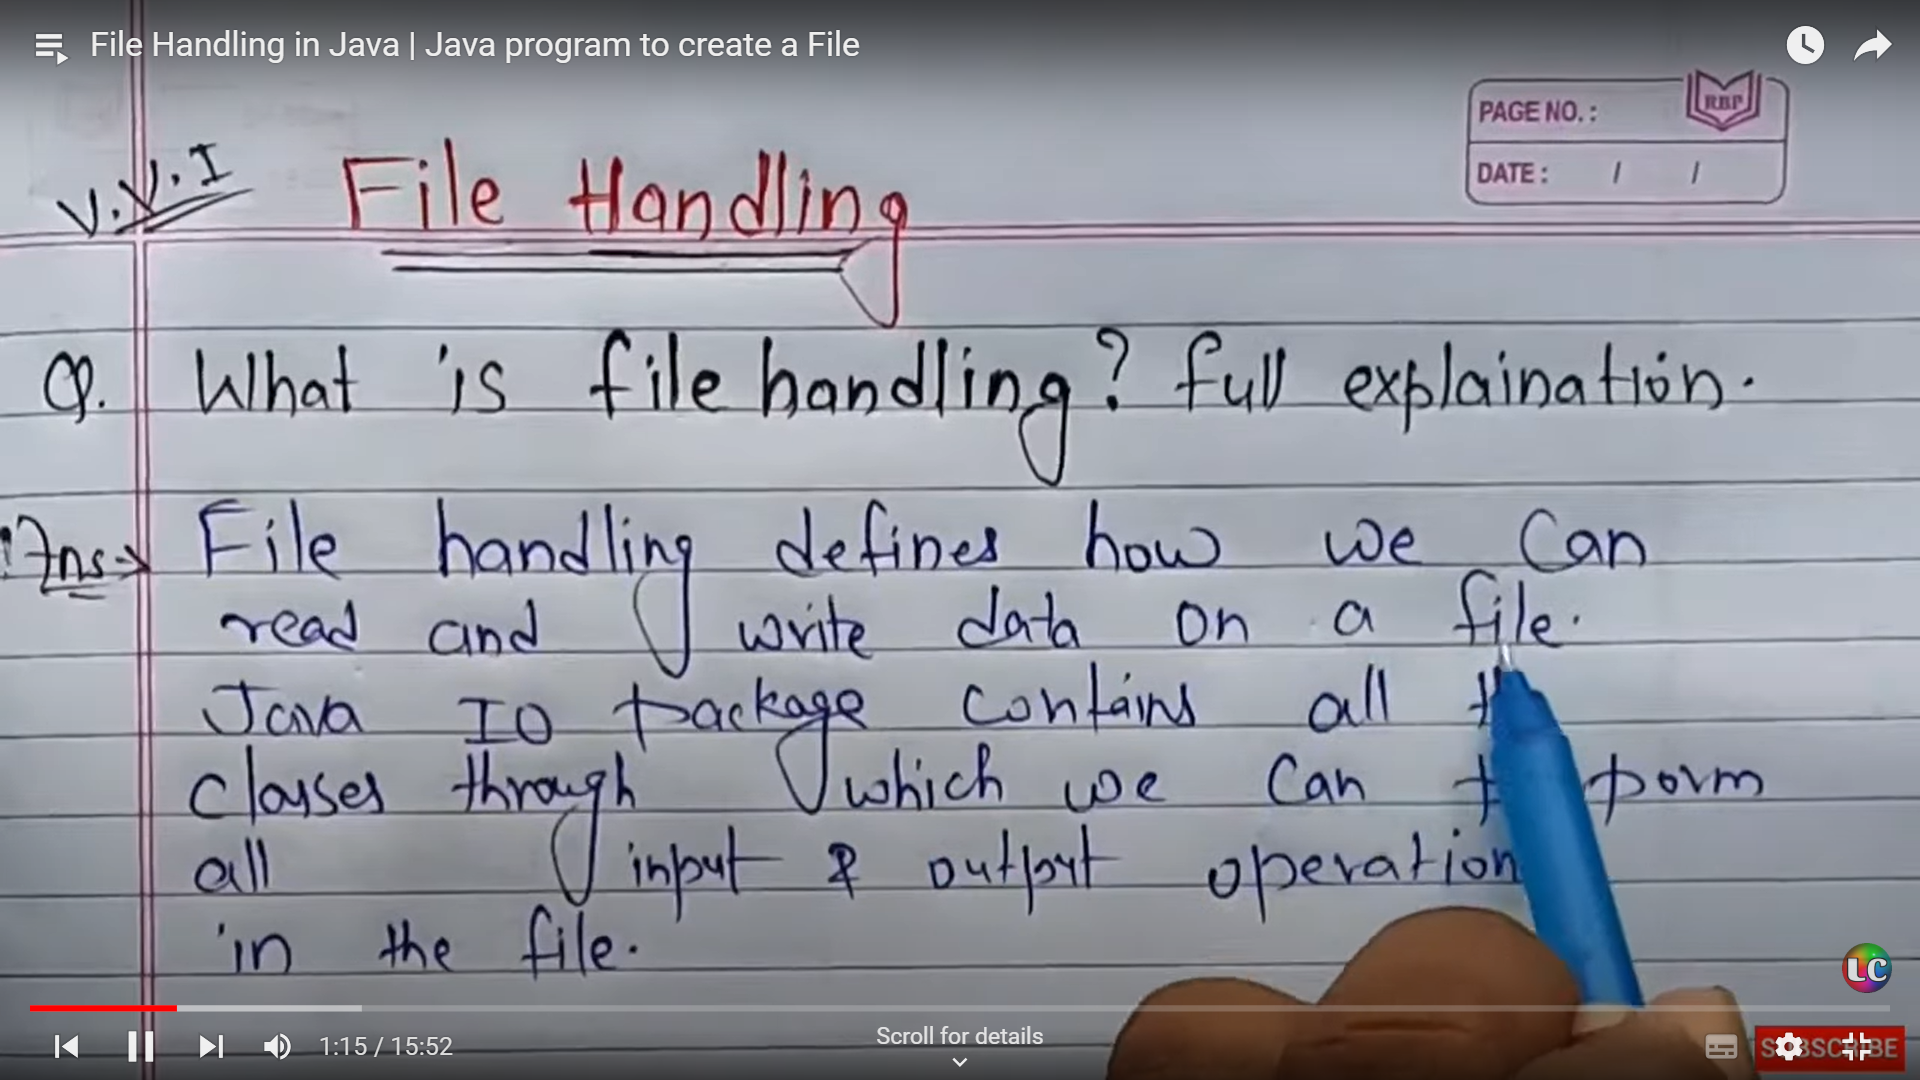 File Handling in Java | Java program to create a File
PAGE NO. :
RBP
DATE : / /
V.V.I
File Handling
Q. What is file handling? full explaination.
Ans→ File handling defines how we can
read and write data on a file.
Java IO package contains all
classes through which we can
all input & output operation
in the file.
LC
Scroll for details
1:15 / 15:52
SUBSCRIBE